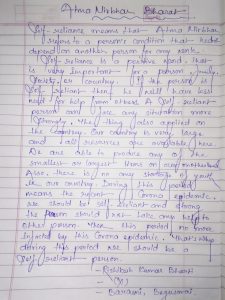 Atma Nirbhar Bharat
Self-reliance means that Atma Nirbhar
refers to a person's condition that
depend on another person for any work.
Self-reliance is a positive word, that
is very important for a person, family,
society, or country. If the person is
Self reliant then he will have less
need for help from others. A Self reliant
person can face any situation more
strongly. They they also applied on
the Country. Our country is very large
and all resources are available here.
We are able to produce any of the
smallest or largest item on our motherland.
Also there is no any shortage of youth
in our country. During this period
means the Corona epidemic.
we should be self reliant and strong
the person should not take any help to
other person. When this period no more
infected by this Corona epidemic. that's why
during this period we should be a
self reliant person.
- Rishikesh Kumar Bharti
- Barauni, Begusarai